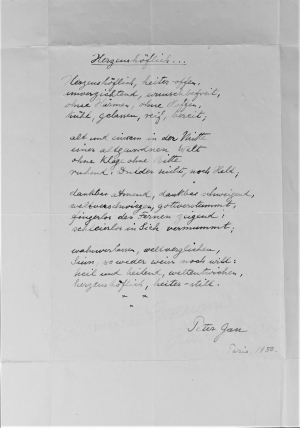 Herzenshöflich...
Herzenshöflich, heiter-offen,
unverzichtend, wunschbefreit,
ohne Härmen, ohne Hoffen,
kühl, gelassen, reif, bereit;
alt und einsam in der Mitte
einer altgewordnen Welt
ohne Klage ohne Bitte
ruhend: Dulder nicht, noch Held;
dankbar atmend, dankbar schweigend,
weltverschwiegen, gottverstummt,
fingerlos der Fernen zeigend
schleierlos in Sich vermummt;
wahnverlassen, weltverglichen,
Sinn, so weder weis noch wild:
heil und heilend, weltentwichen,
herzenshöflich, heiter-still.
Peter Gan
Paris, 1950.